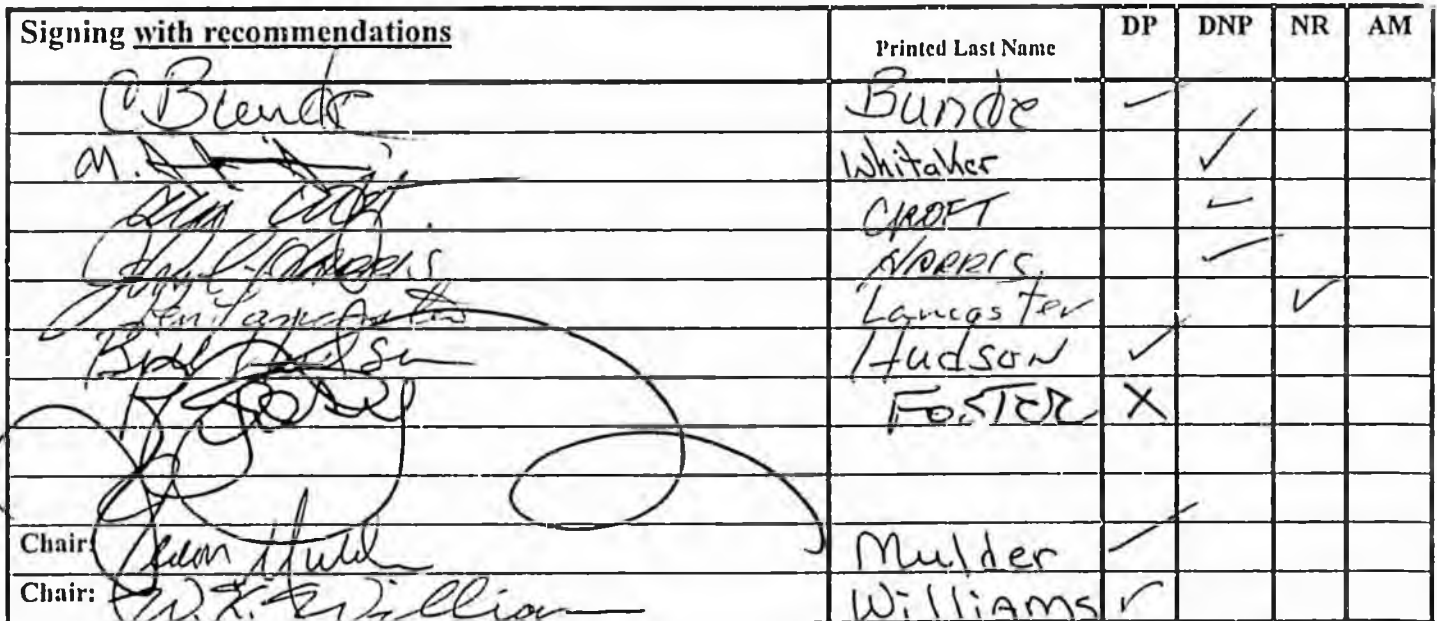 Signing with recommendations Printed Last Name DP DNP NR AM
C. Bunde Bunde ✓
M. Whitaker ✓
CROFT ✓
Harris HARRIS ✓
Lancaster Lancaster ✓
Bill Hudson Hudson ✓
FOSTER X
Chair: Mulder ✓
Chair: W.K. Williams Williams ✓